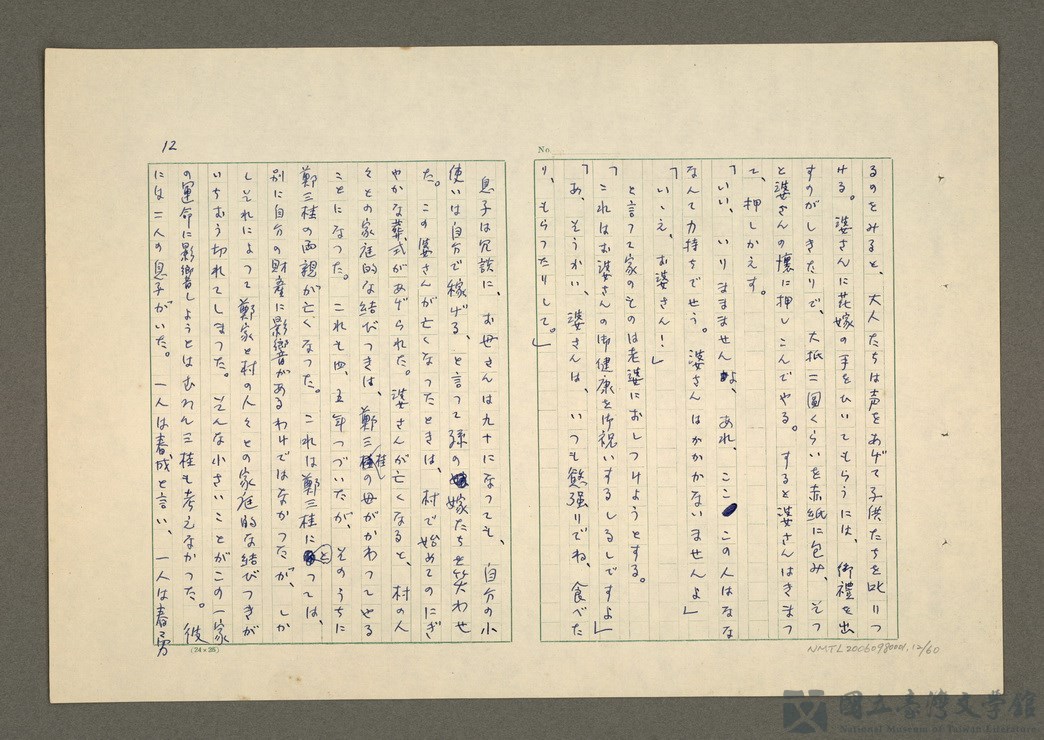 No.
るのをみると、大人たちは声をあげて子供たちを叱りつ
ける。婆さんに花嫁の手をひいてもらうには、御禮を出
すのがしきたりで、大抵二圓くらいを赤紙に包み、そつ
と婆さんの懐に押しこんでやる。すると婆さんはきまつ
て、押しかえす。
「いい、いりまませんよ、あれ、ここ この人はなな
なんて力持ちでせう。婆さんはかかかないませんよ」
「いいえ、お婆さん！」
と言って家のものは老婆におしつけようとする。
「これはお婆さんの御健康を御祝いするしるしですよ」
「あ、そうかい、婆さんは、いつも慾張りでね、食べた
り、もらつたりして。」
12
息子は冗談に、お母さんは九十になつても、自分の小
使いは自分で稼げる、と言って孫の嫁たちを笑わせ
た。この婆さんが亡くなつたときは、村で始めてのにぎ
やかな葬式があげられた。婆さんが亡くなると、村の人
々との家庭的な結びつきは、鄭三桂の母がかわつてやる
ことになつた。これも四、五年つづいたが、そのうちに
鄭三桂の両親が亡くなつた。これは鄭三桂にとつては、
別に自分の財産に影響があるわけではなかつたが、しか
しそれによつて鄭家と村の人々との家庭的な結びつきが
いちおう切れてしまつた。そんな小さいことがこの一家
の運命に影響しようとはむろん三桂も考えなかつた。彼
には二人の息子がいた。一人は春成と言い、一人は春勇
(24×25)
NMTL20060980001.12/60
國立臺灣文學館
National Museum of Taiwan Literature